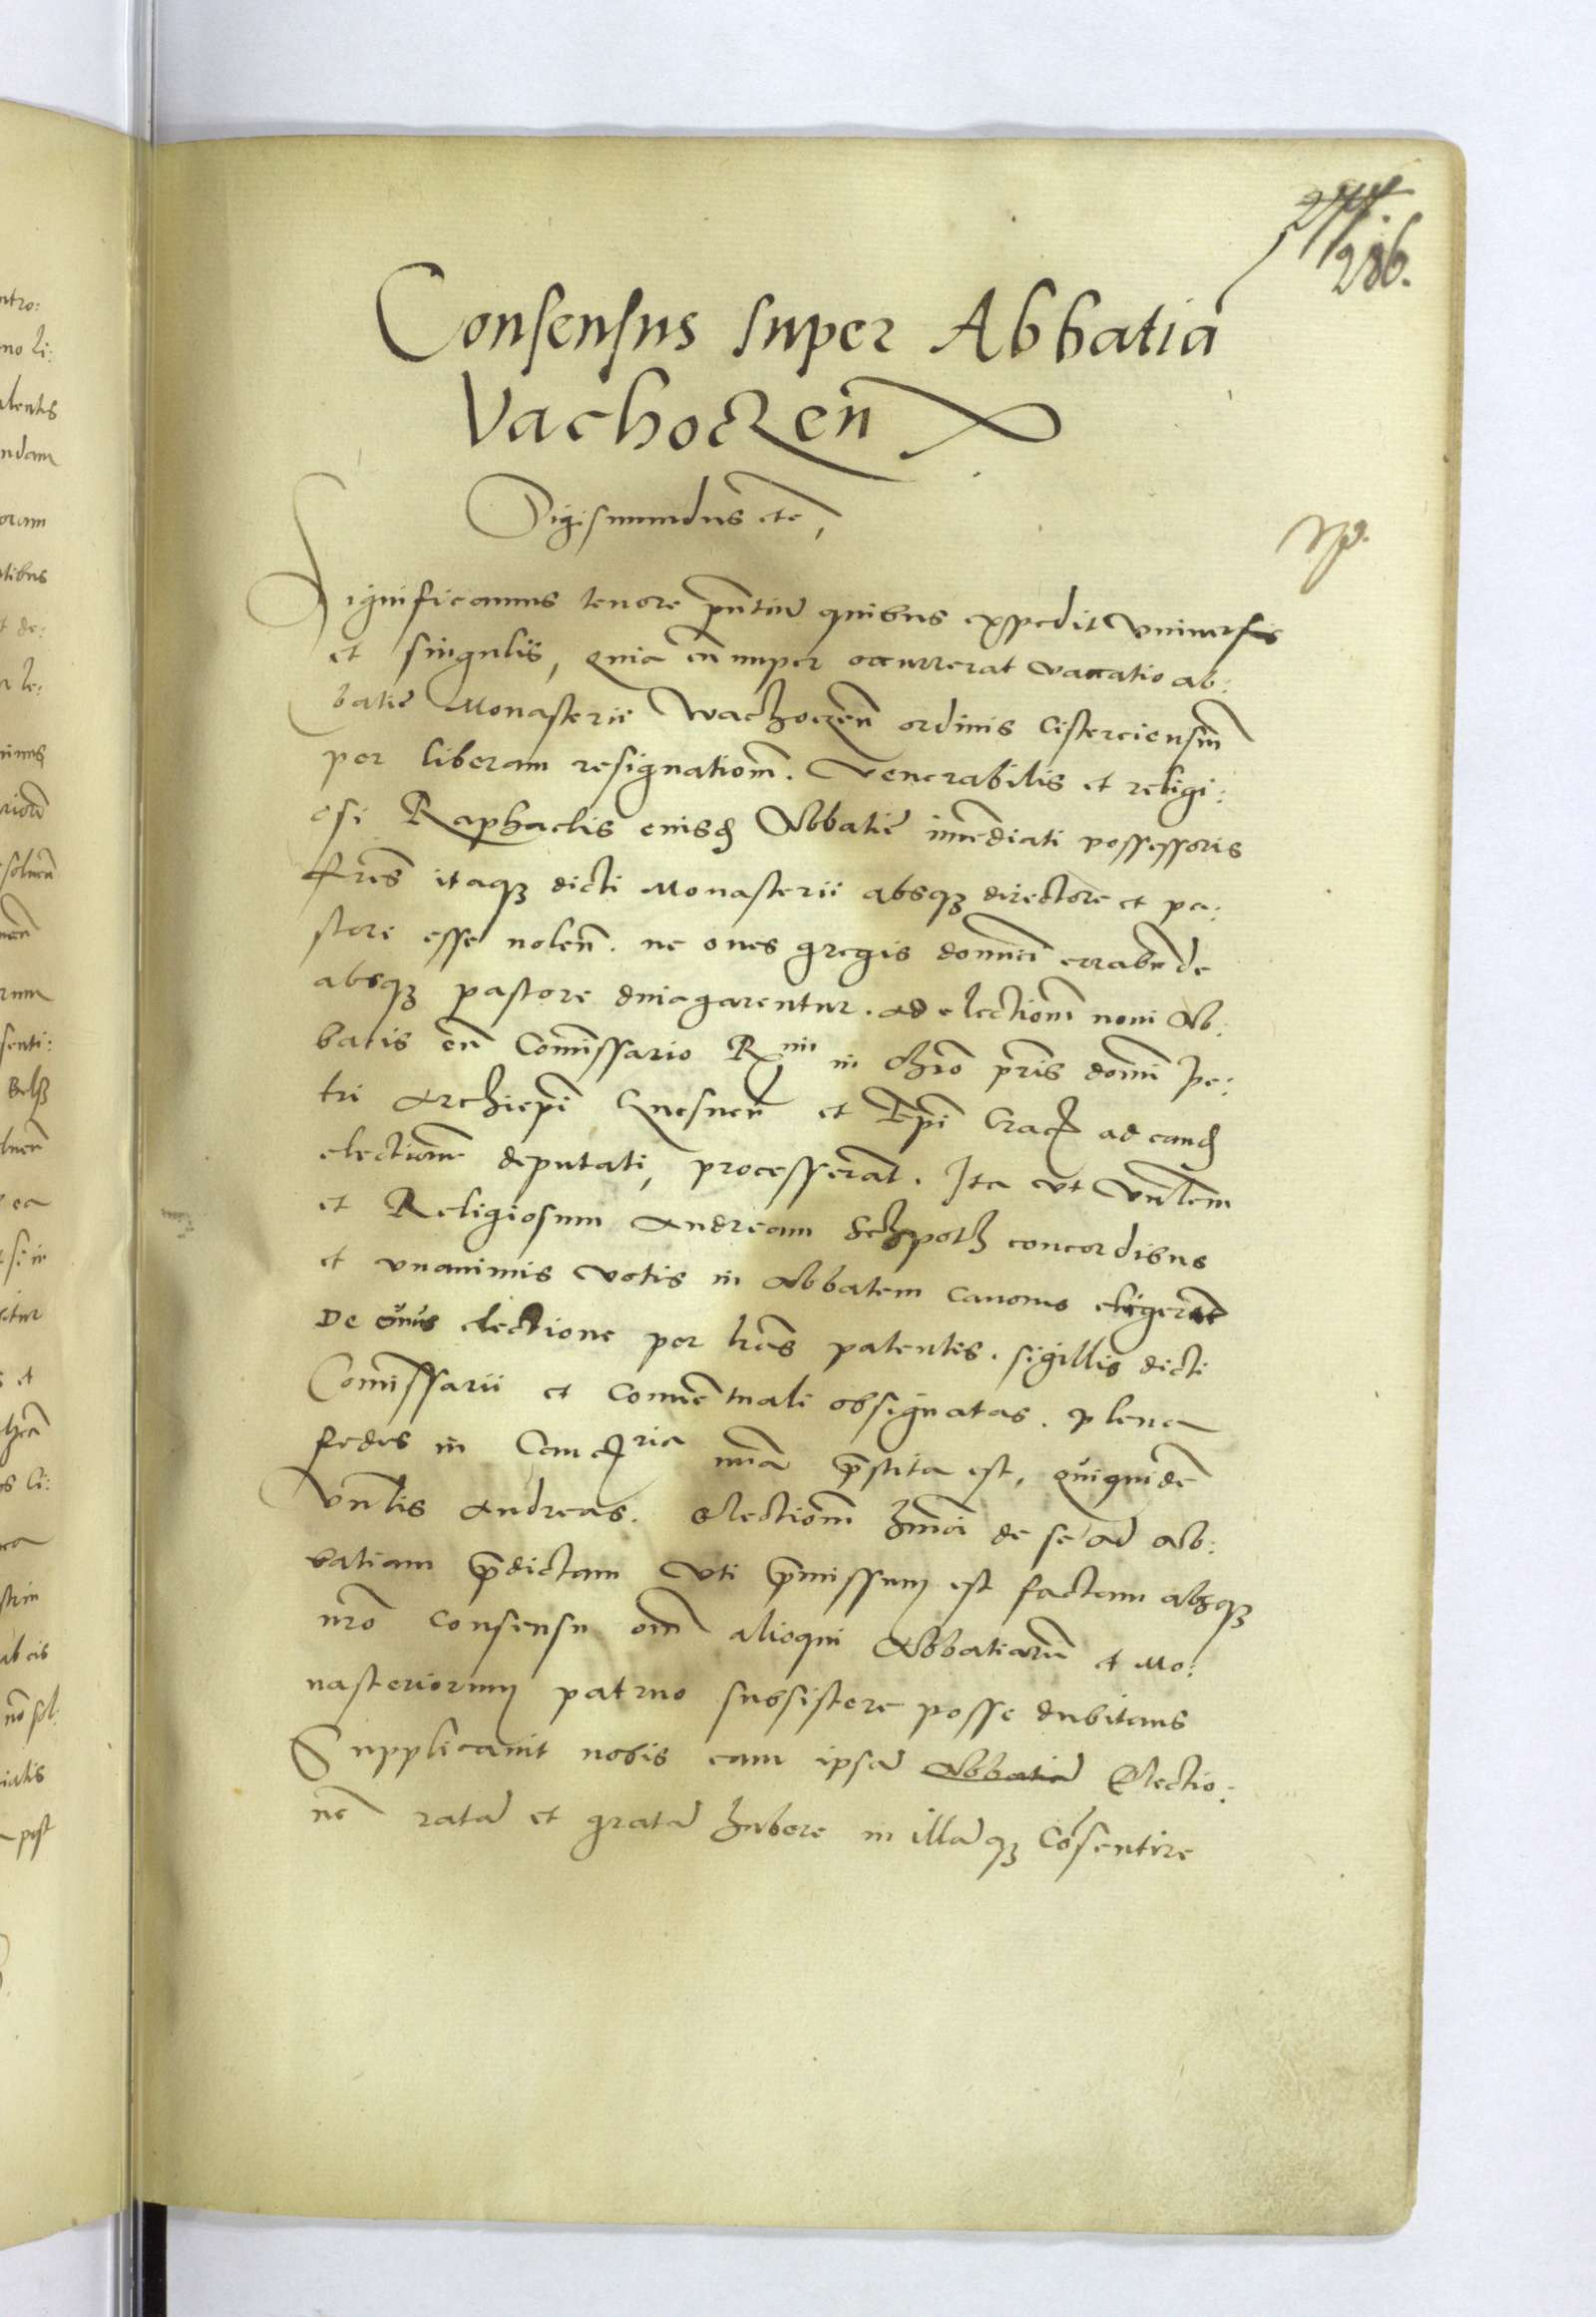 286.
Consensus super Abbatiā
Vachoczen̄
Sigismundus etc,
Significamus tenore pn̄tiū quibus expedit vniuersis
et singulis, quia cū nuper occurrerat vacatio ab:
batiē Monasterii Wachoczen̄ ordinis Cisterciensiū
per liberam resignationē. Venerabilis et religi:
osi Raphaelis eiusq Abbatiē im̄ediati possessoris
fr̄es itaqz dicti Monasterii absqz directore et pa:
store esse nolen̄. ne oues gregis dominici errabūde
absqz pastore diuagarentur. ad electionē noui Ab:
batis cū Com̄issario R̄mi in Chr̄o pr̄is domī Pe:
tri Archiep̄i Gnesnen̄ et Ep̄i Crac ad eand
electionem deputati, processerāt. Ita vt Vn̄lem
et Religiosum Andream Schpoth concordibus
et vnanimis votis in Abbatem canonice eligerāt
De cuius electione per lr̄as patentes. sigillis dicti
Com̄issarii et Conuētuali obsignatas. plena
fedes in Cancria nr̄a p̄stita est, quiquidē
Vn̄lis Andreas. electionē hmōi de se ad Ab:
batiam p̄dictam vti p̄missum est factam absqz
nr̄o consensu om̄ alioqui Abbatiarū et Mo:
nasteriorum patrno subsistere posse dubitans
Supplicauit nobis eam ipsā Abbatiā Electio:
nē ratā et gratā habere in illāqz Cōsentire